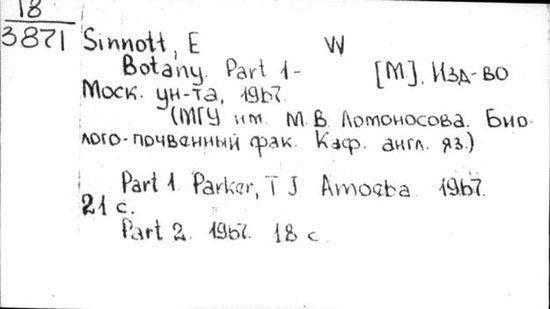 18
3871 Sinnott, E W
Botany. Part 1- [М]. Изд-во
Моск. ун-та, 1967.
(МГУ им. М.В. Ломоносова. Био-
лого-почвенный фак. Каф. англ. яз.)
Part 1. Parker, T J Amoeba. 1967.
21 с.
Part 2. 1967. 18 с.